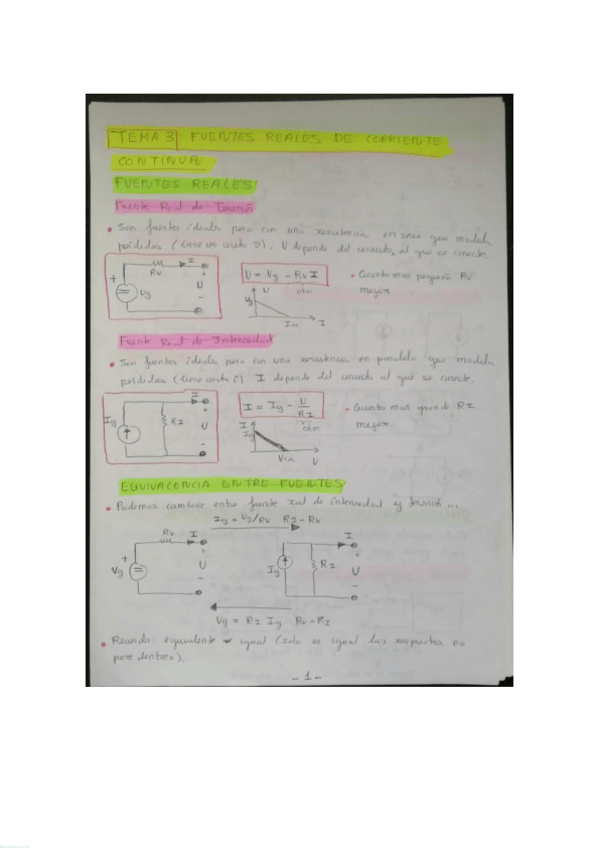 TEMA 3: FUENTES REALES DE CORRIENTE
CONTINUA
FUENTES REALES
Fuente Real de Tensión
• Son fuentes ideales pero con una resistencia en serie que modela
pérdidas (tiene un coste). U depende del circuito al que se conecte.
Rv I
+ Ug U
-
U = Vg - Rv I
ohm
U
Vg
Icc I
• Cuanto más pequeña Rv
mejor.
Fuente Real de Intensidad
• Son fuentes ideales pero con una resistencia en paralelo que modela
pérdidas I depende del circuito al que se conecte.
I
Ig RI + U -
I = Ig - U/RI
ohm
I
Ig
U
• Cuanto más grande RI
mejor.
EQUIVALENCIA ENTRE FUENTES
• Podemos cambiar entre fuente real de intensidad y tensión...
Ig = Vg/Rv RI = Rv
Rv I
+ Vg U -
I
Ig RI + U -
Vg = RI Ig Rv = RI
• Recorda: equivalente ≠ igual (solo es igual las respuestas, no
por dentro).
- 1 -